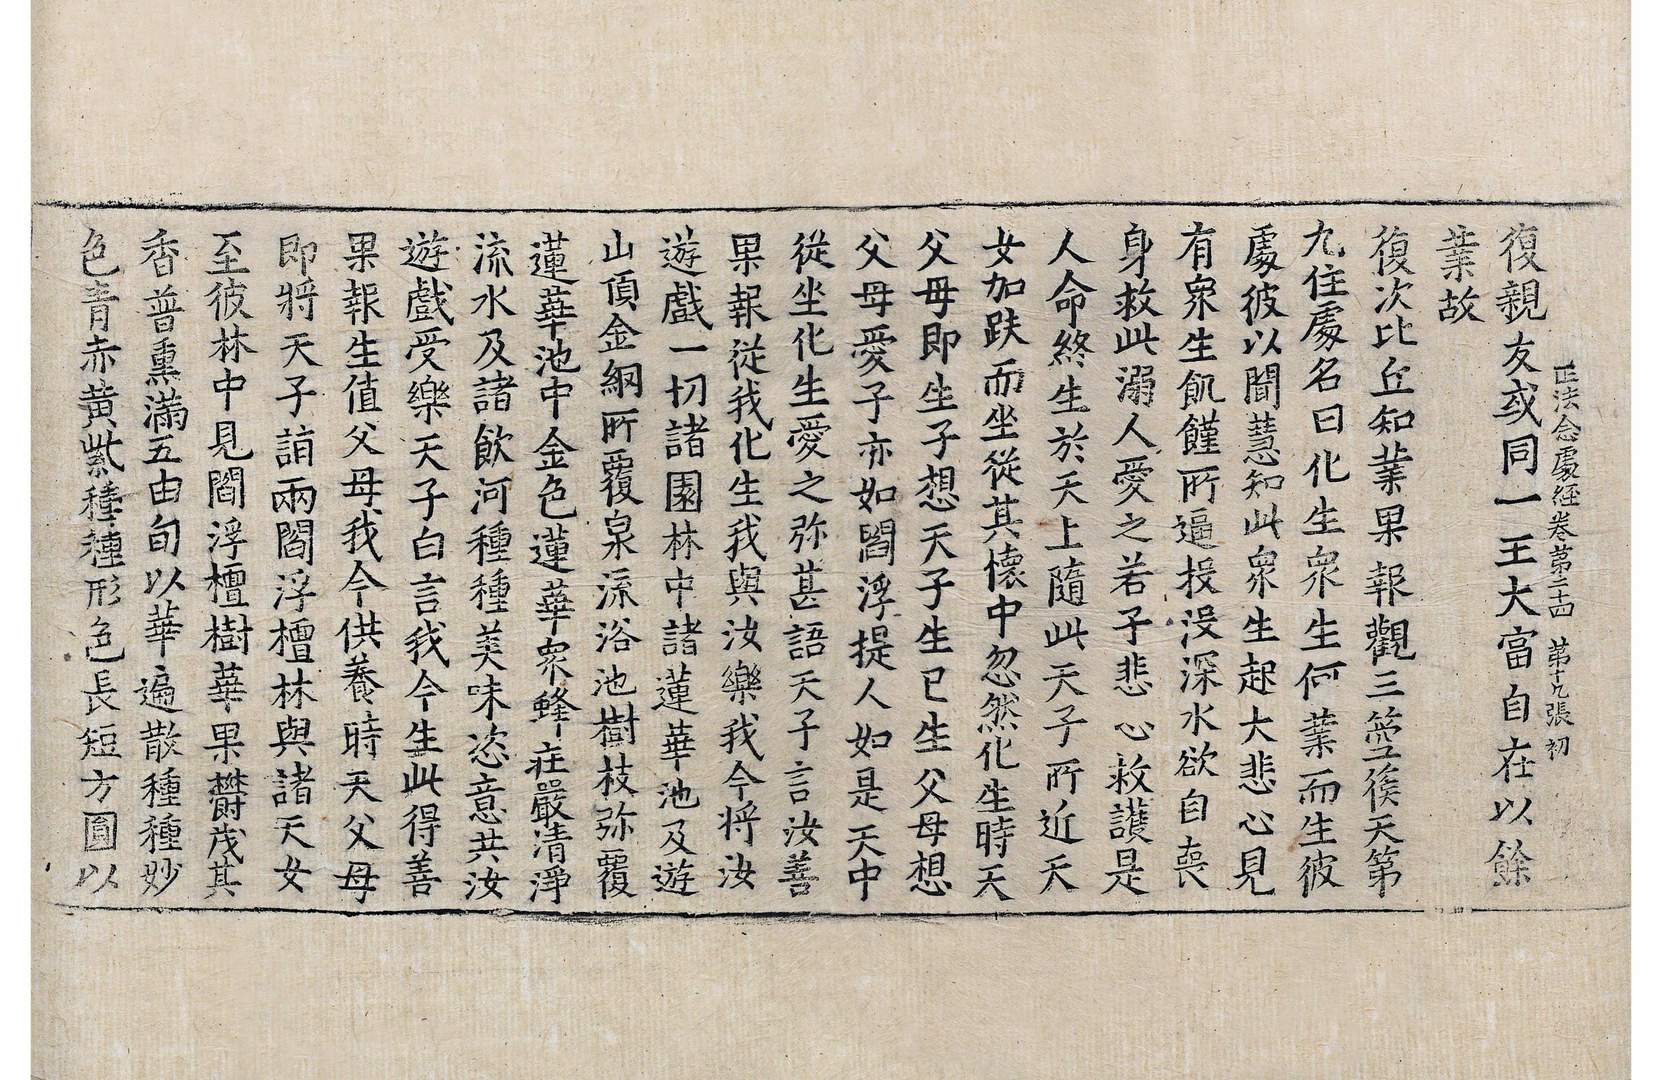 正法念處經卷第二十四 第十九張 初
復親友或同一王大富自在以餘
業故
復次比丘知業果報觀三箜篌天第
九住處名曰化生衆生何業而生彼
處彼以聞慧知此衆生起大悲心見
有衆生飢饉所逼投没深水欲自喪
身救此溺人愛之若子悲心救護是
人命終生於天上隨此天子所近天
女加趺而坐從其懷中忽然化生時天
父母即生子想天子生已生父母想
父母愛子亦如閻浮提人如是天中
從坐化生愛之弥甚語天子言汝善
果報從我化生我與汝樂我今將汝
遊戲一切諸園林中諸蓮華池及遊
山頂金網所覆泉流浴池樹枝弥覆
蓮華池中金色蓮華衆蜂莊嚴清淨
流水及諸飲河種種美味恣意共汝
遊戲受樂天子白言我今生此得善
果報生值父母我今供養時天父母
即將天子詣兩閻浮檀林與諸天女
至彼林中見閻浮檀樹華果欝茂其
香普熏滿五由旬以華遍散種種妙
色青赤黄紫種種形色長短方圓以